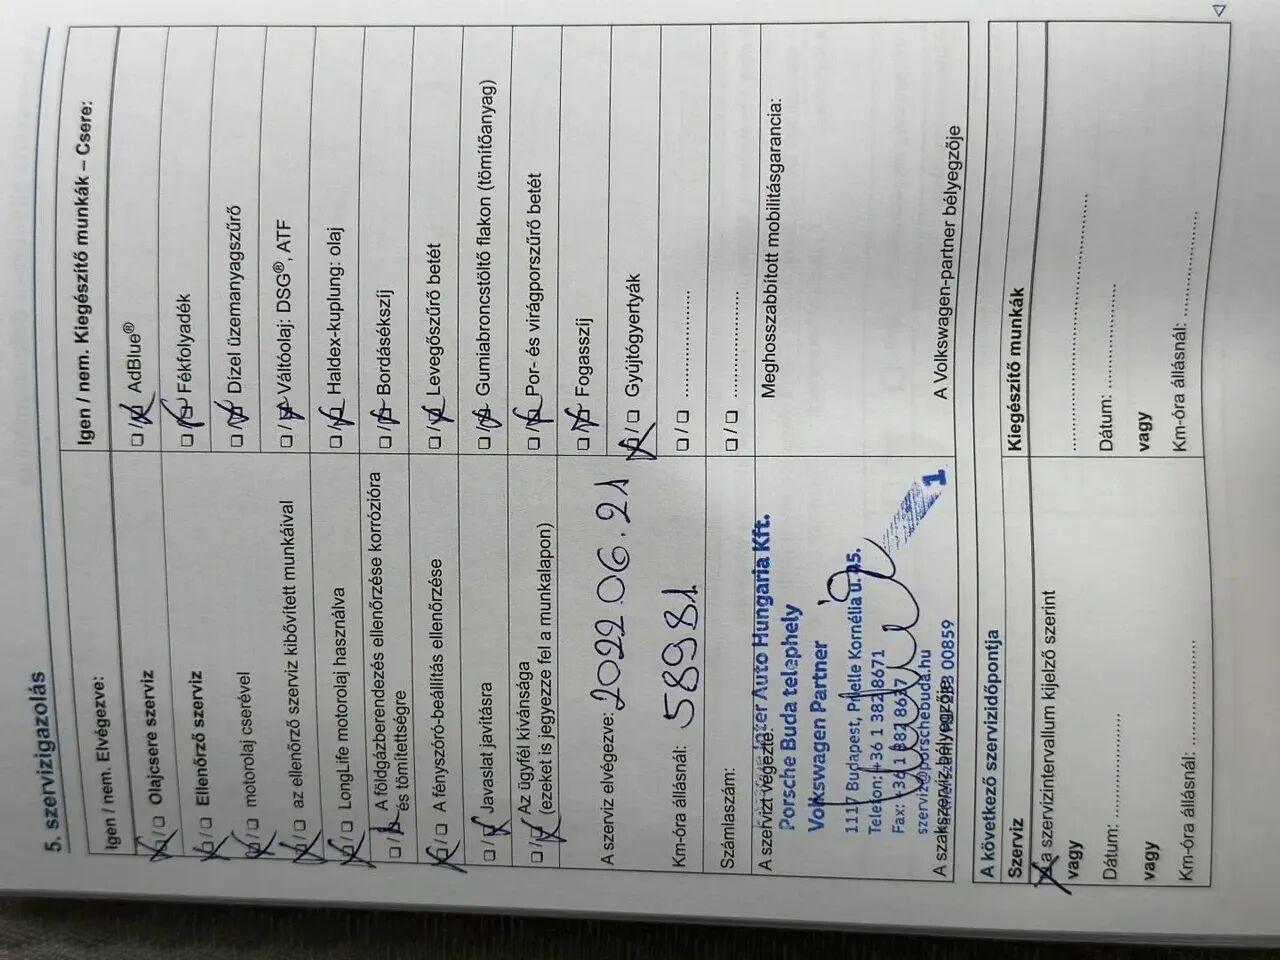 5. szervizigazolás
Igen / nem. Elvégezve:
☒/☐ Olajcsere szerviz
☒/☐ Ellenőrző szerviz
☒/☐ motorolaj cserével
☒/☐ az ellenőrző szerviz kibővített munkáival
☒/☐ LongLife motorolaj használva
☐/☒ A földgázberendezés ellenőrzése korrózióra
és tömítettségre
☒/☐ A fényszóró-beállítás ellenőrzése
☐/☒ Javaslat javításra
☐/☒ Az ügyfél kívánsága
(ezeket is jegyezze fel a munkalapon)
A szerviz elvégezve: 2022.06.21
Km-óra állásnál: 58981
Számlaszám:
A szervizt végezte:
Auto Hungaria Kft.
Porsche Buda telephely
Volkswagen Partner
1117 Budapest, Prielle Kornélia u. 45.
Telefon: +36 1 382 8671
Fax: +36 1 382 8637
szerviz@porschebuda.hu
00859
1
A szakszerviz bélyegzője
Igen / nem. Kiegészítő munkák – Csere:
☐/☒ AdBlue®
☐/☒ Fékfolyadék
☐/☒ Dízel üzemanyagszűrő
☐/☒ Váltóolaj: DSG®, ATF
☐/☒ Haldex-kuplung: olaj
☐/☒ Bordásékszíj
☐/☒ Levegőszűrő betét
☐/☒ Gumiabroncstöltő flakon (tömítőanyag)
☐/☒ Por- és virágporszűrő betét
☐/☒ Fogasszíj
☒/☐ Gyújtógyertyák
☐/☐ ......................
☐/☐ ......................
Meghosszabbított mobilitásgarancia:
A Volkswagen-partner bélyegzője
A következő szervizidőpontja
Szerviz
☒ a szervizintervallum kijelző szerint
vagy
Dátum: ......................
vagy
Km-óra állásnál: ......................
Kiegészítő munkák
............................................
Dátum: ......................
vagy
Km-óra állásnál: ......................